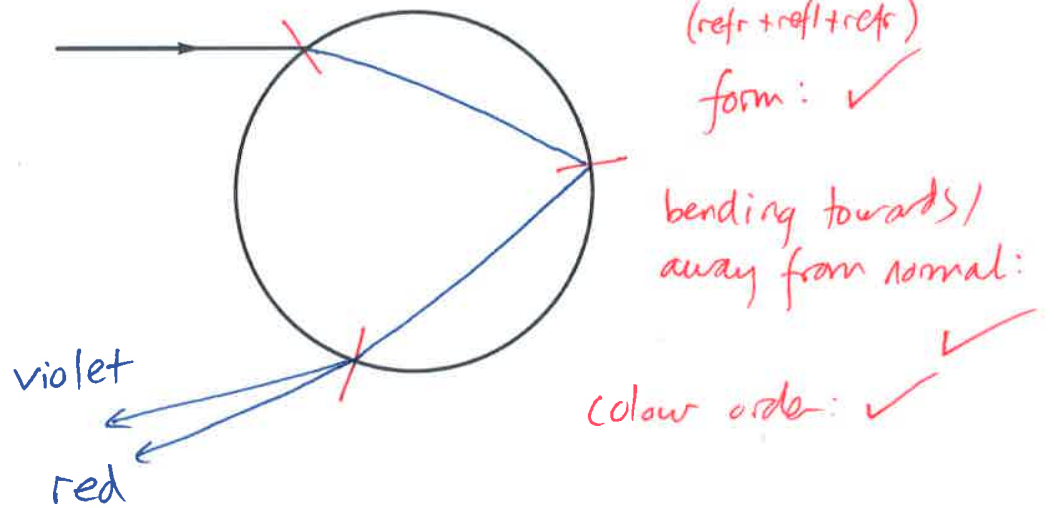 (refr+refl+refr)
form: ✓
bending towards/
away from normal:
✓
violet
colour order: ✓
red